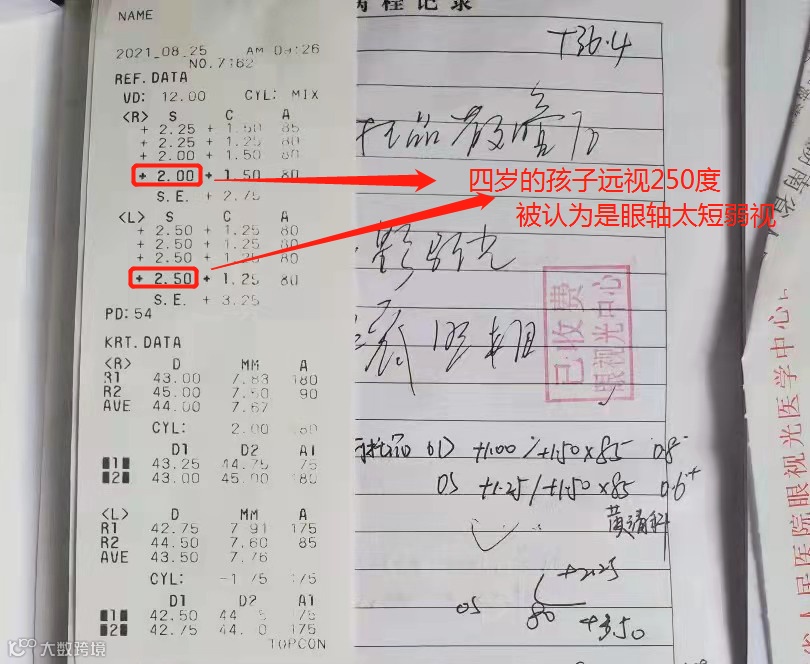 NAME
2021_08_25 AM 09:26
NO.7162
REF.DATA
VD: 12.00 CYL: MIX
<R> S C A
+ 2.25 + 1.50 85
+ 2.25 + 1.25 80
+ 2.00 + 1.50 80
+ 2.00 + 1.50 80
S.E. + 2.75
<L> S C A
+ 2.50 + 1.25 80
+ 2.50 + 1.25 80
+ 2.50 + 1.25 80
+ 2.50 + 1.25 80
S.E. + 3.25
PD: 54
KRT.DATA
<R> D MM A
R1 43.00 7.83 180
R2 45.00 7.50 90
AVE 44.00 7.67
CYL: 2.00 80
D1 D2 A1
■1■ 43.25 44.75 75
■2■ 43.00 45.00 180
<L> D MM A
R1 42.75 7.91 175
R2 44.50 7.60 85
AVE 43.50 7.76
CYL: -1.75 175
D1 D2 A1
■1■ 42.50 44 75
■2■ 42.75 44 0 175
TOPCON
程记录
T36.4
托品散瞳后
四岁的孩子远视250度
被认为是眼轴太短弱视
影验光
已收费
眼视光中心
托品 OD +1.00/+1.50×85 0.8-
OS +1.25/+1.50×85 0.6+
+2.25
OS 80 +3.50
湖南省人
人民医院眼视光医学中心
大数跨境